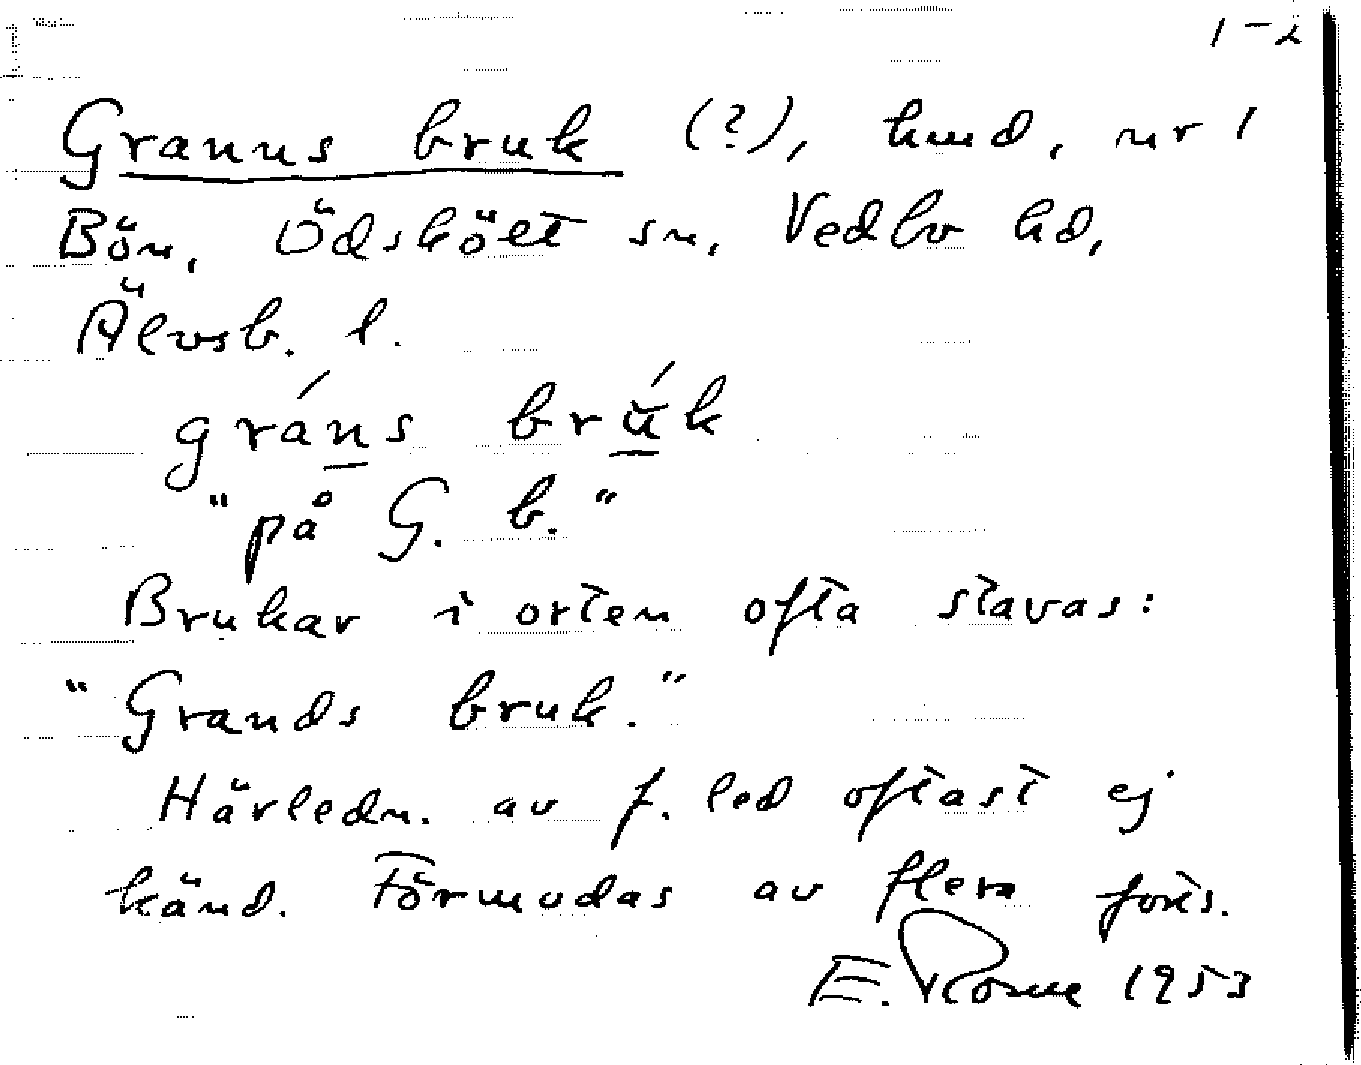 1-2
Granns bruk (?), hmd, nr 1
Bön, Ödskölt sn, Vedbo hd,
Älvsb. l.
gráns brúk
"på G. b."
Brukar i orten ofta stavas:
"Grands bruk."
Härledn. av f. led oftast ej
känd. Förmodas av flera
E. 1953